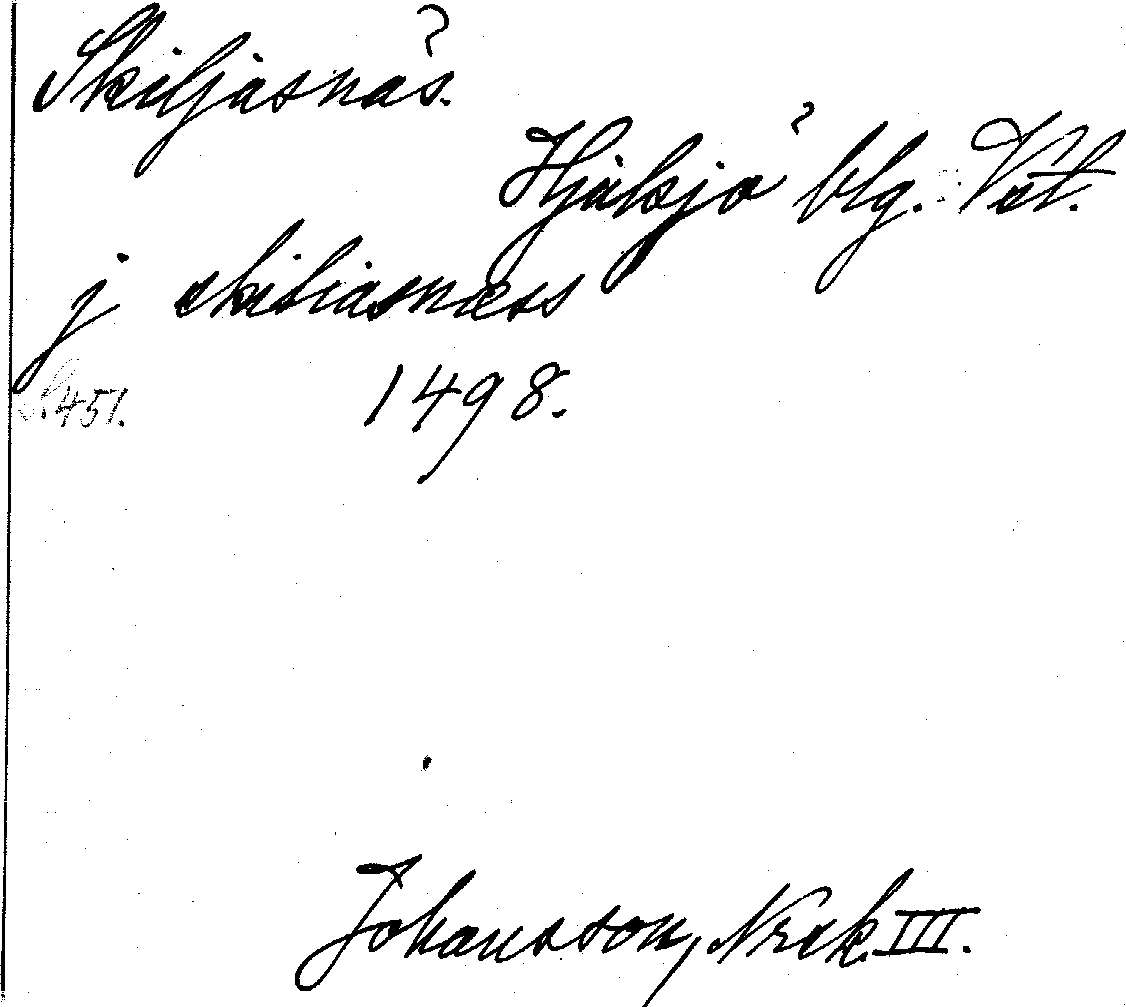 Skiljasnäs.
Hjälsjö blg. Vät.
j skiliasness
S. 451.
1498.
Johansson, Norak. III.